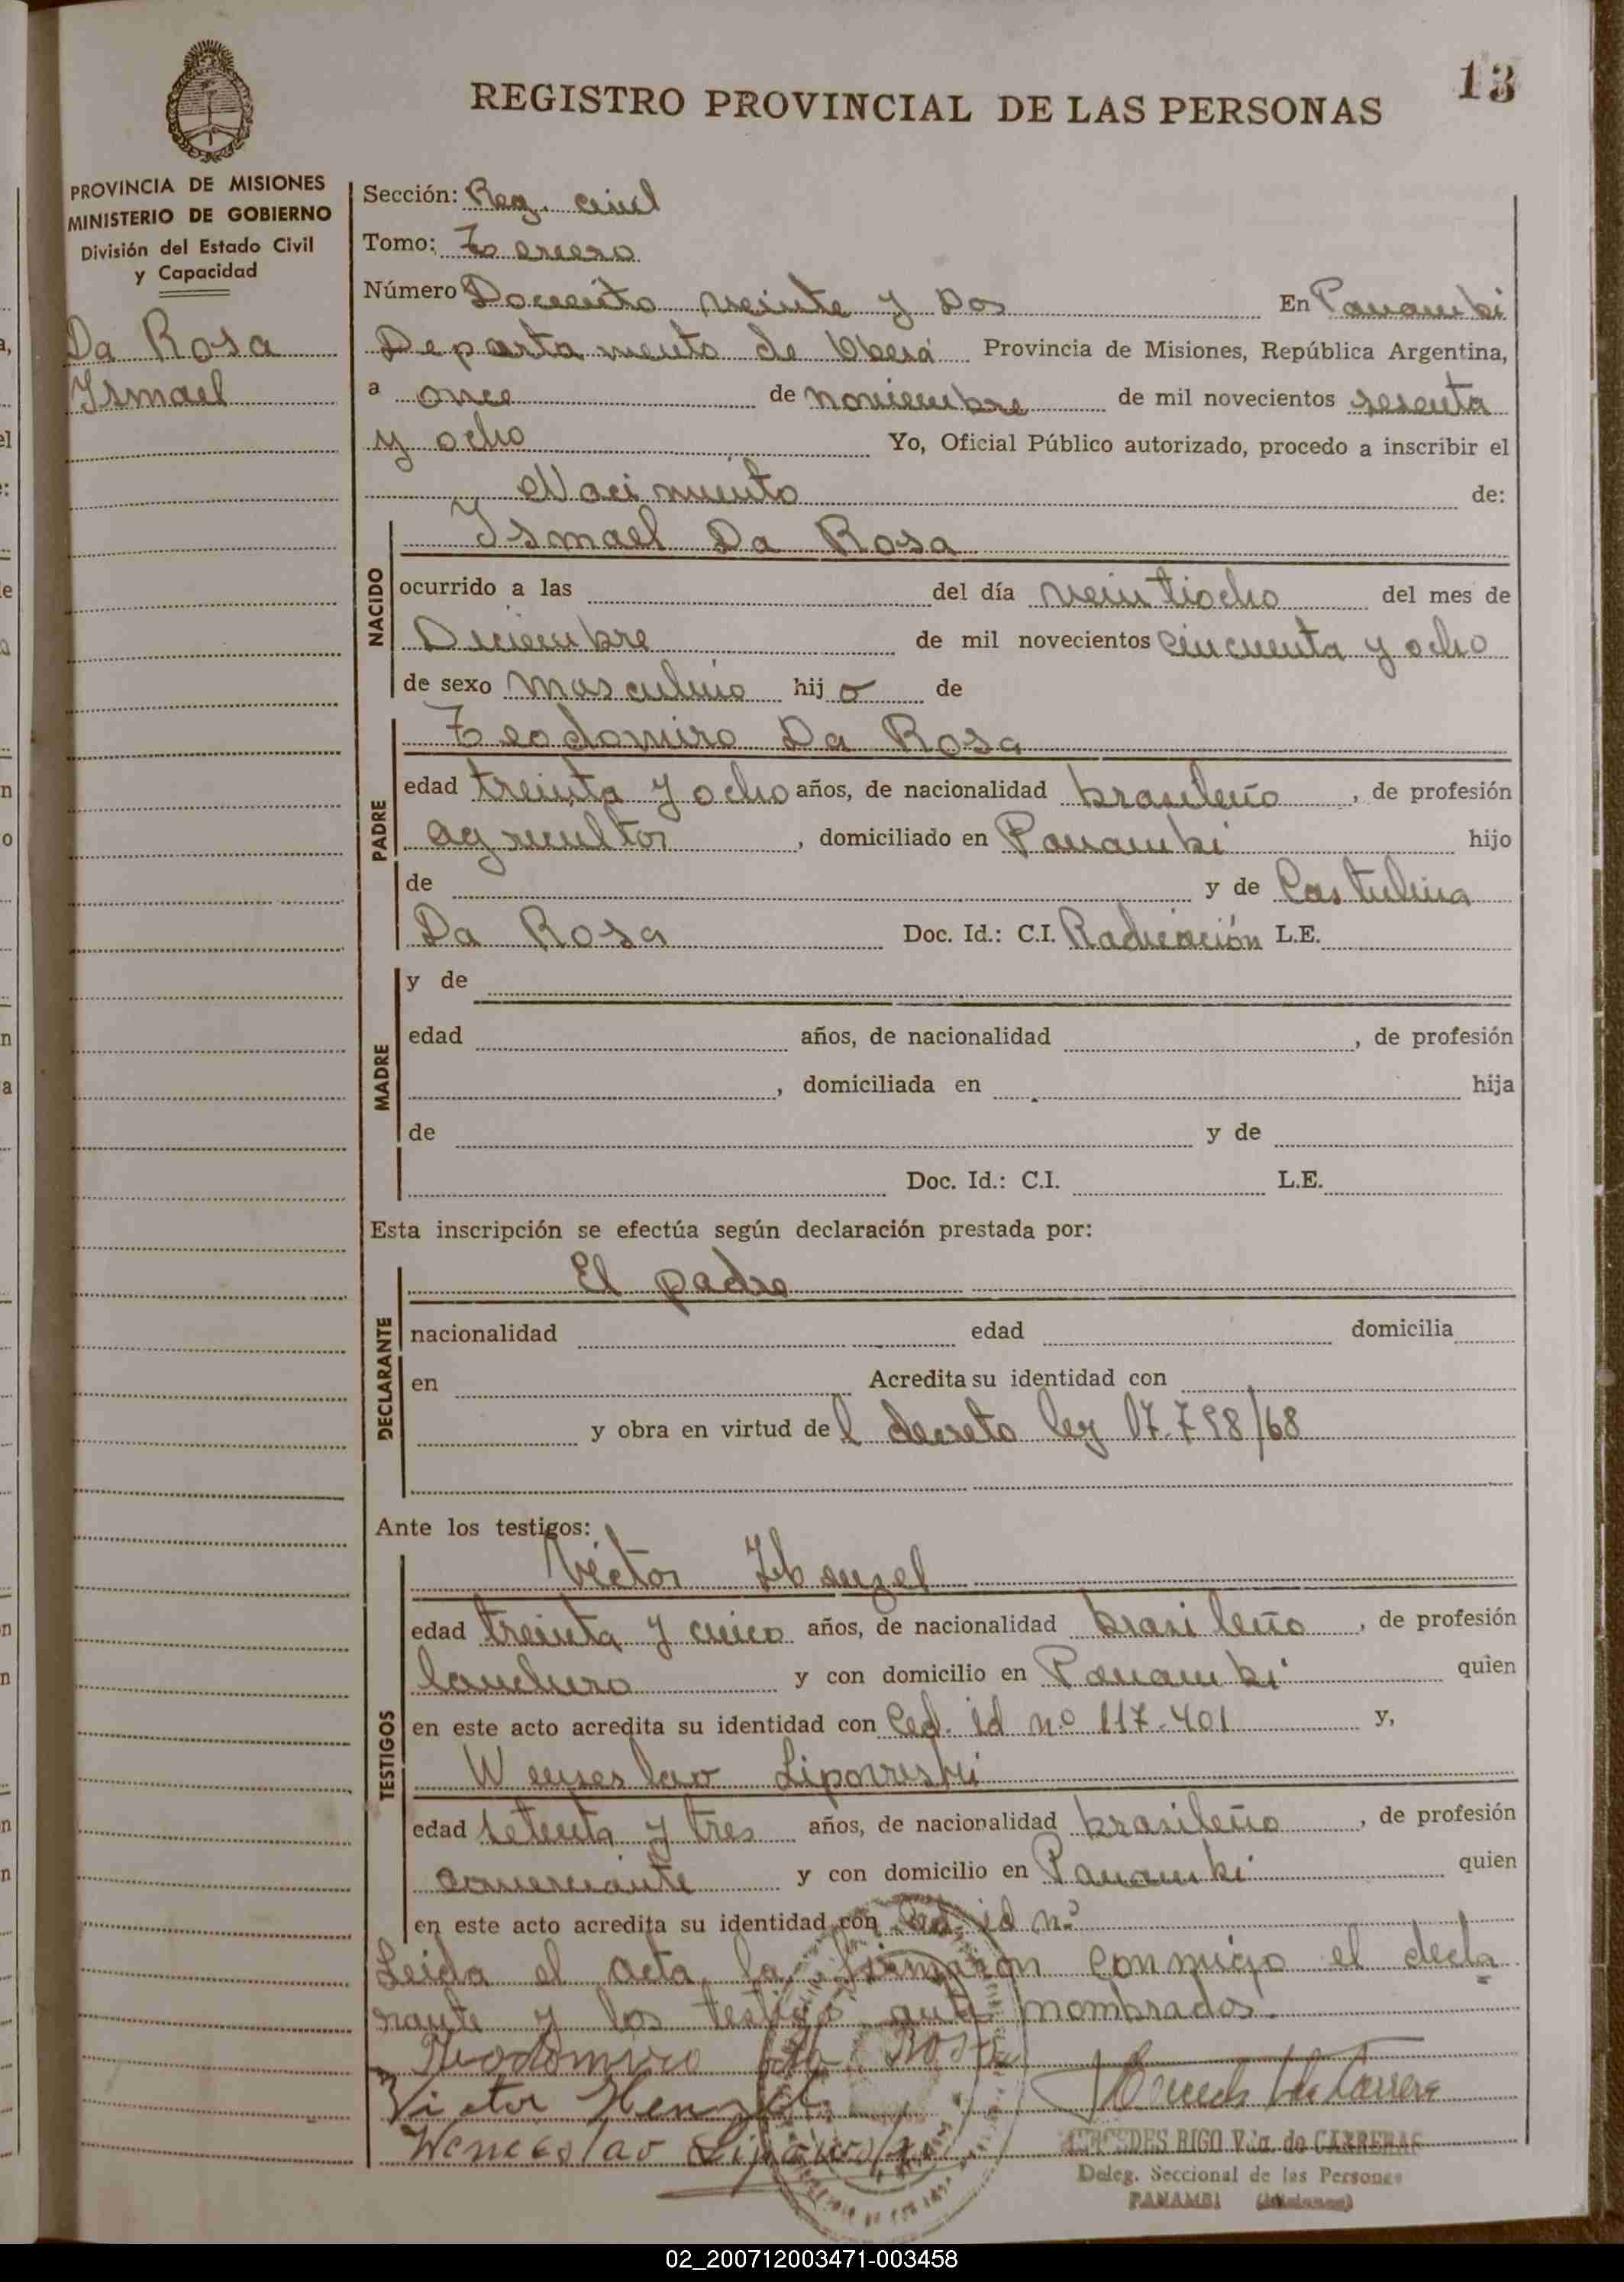 13
REGISTRO PROVINCIAL DE LAS PERSONAS
PROVINCIA DE MISIONES
MINISTERIO DE GOBIERNO
División del Estado Civil
y Capacidad
Da Rosa
Ismael
Sección: Reg. civil
Tomo: Tercero
Número Docento veinte y Dos En Panambi
Departamento de Oberá Provincia de Misiones, República Argentina,
a once de noviembre de mil novecientos sesenta
y ocho Yo, Oficial Público autorizado, procedo a inscribir el
Nacimiento de:
NACIDO
Ismael Da Rosa
ocurrido a las del día veintiocho del mes de
Diciembre de mil novecientos cincuenta y ocho
de sexo masculino hijo de
PADRE
Teodomiro Da Rosa
edad treinta y ocho años, de nacionalidad brasileño, de profesión
agricultor, domiciliado en Panambi hijo
de y de Castulina
Da Rosa Doc. Id.: C.I. Radicación L.E.
MADRE
y de
edad años, de nacionalidad , de profesión
, domiciliada en hija
de y de
Doc. Id.: C.I. L.E.
Esta inscripción se efectúa según declaración prestada por:
DECLARANTE
El padre
nacionalidad edad domicilia
en Acredita su identidad con
y obra en virtud del decreto ley 17.798/68
Ante los testigos:
TESTIGOS
Victor
edad treinta y cinco años, de nacionalidad brasileño, de profesión
lanchero y con domicilio en Panambi quien
en este acto acredita su identidad con Ced. id nº 117.401 y,
Wenseslao Lipowski
edad setenta y tres años, de nacionalidad brasileño, de profesión
comerciante y con domicilio en Panambi quien
en este acto acredita su identidad con Ced. id nº
Leida el acta, la firmaron conmigo el decla
rante y los testigos nombrados.
Teodomiro da Rosa
Victor Henzel
Wenceslao
MERCEDES RIGO Vda. de CARRERAS
Deleg. Seccional de las Personas
PANAMBI (Misiones)
02_200712003471-003458